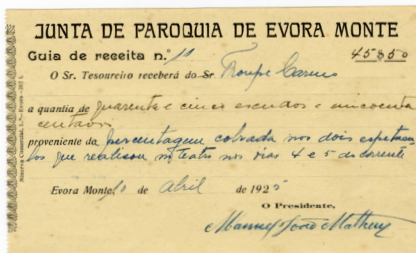 JUNTA DE PAROQUIA DE EVORA MONTE
Guia de receita n.º 11 45$50
O Sr. Tesoureiro receberá do Sr Troupe
a quantia de quarenta e cinco escudos e cincoenta
centavos
proveniente da percentagem cobrada nos dois espetacu-
los que realisou no teatro nos dias 4 e 5 do corrente
Evora Monte, 10 de abril de 1925
O Presidente,
Manuel João Matheus